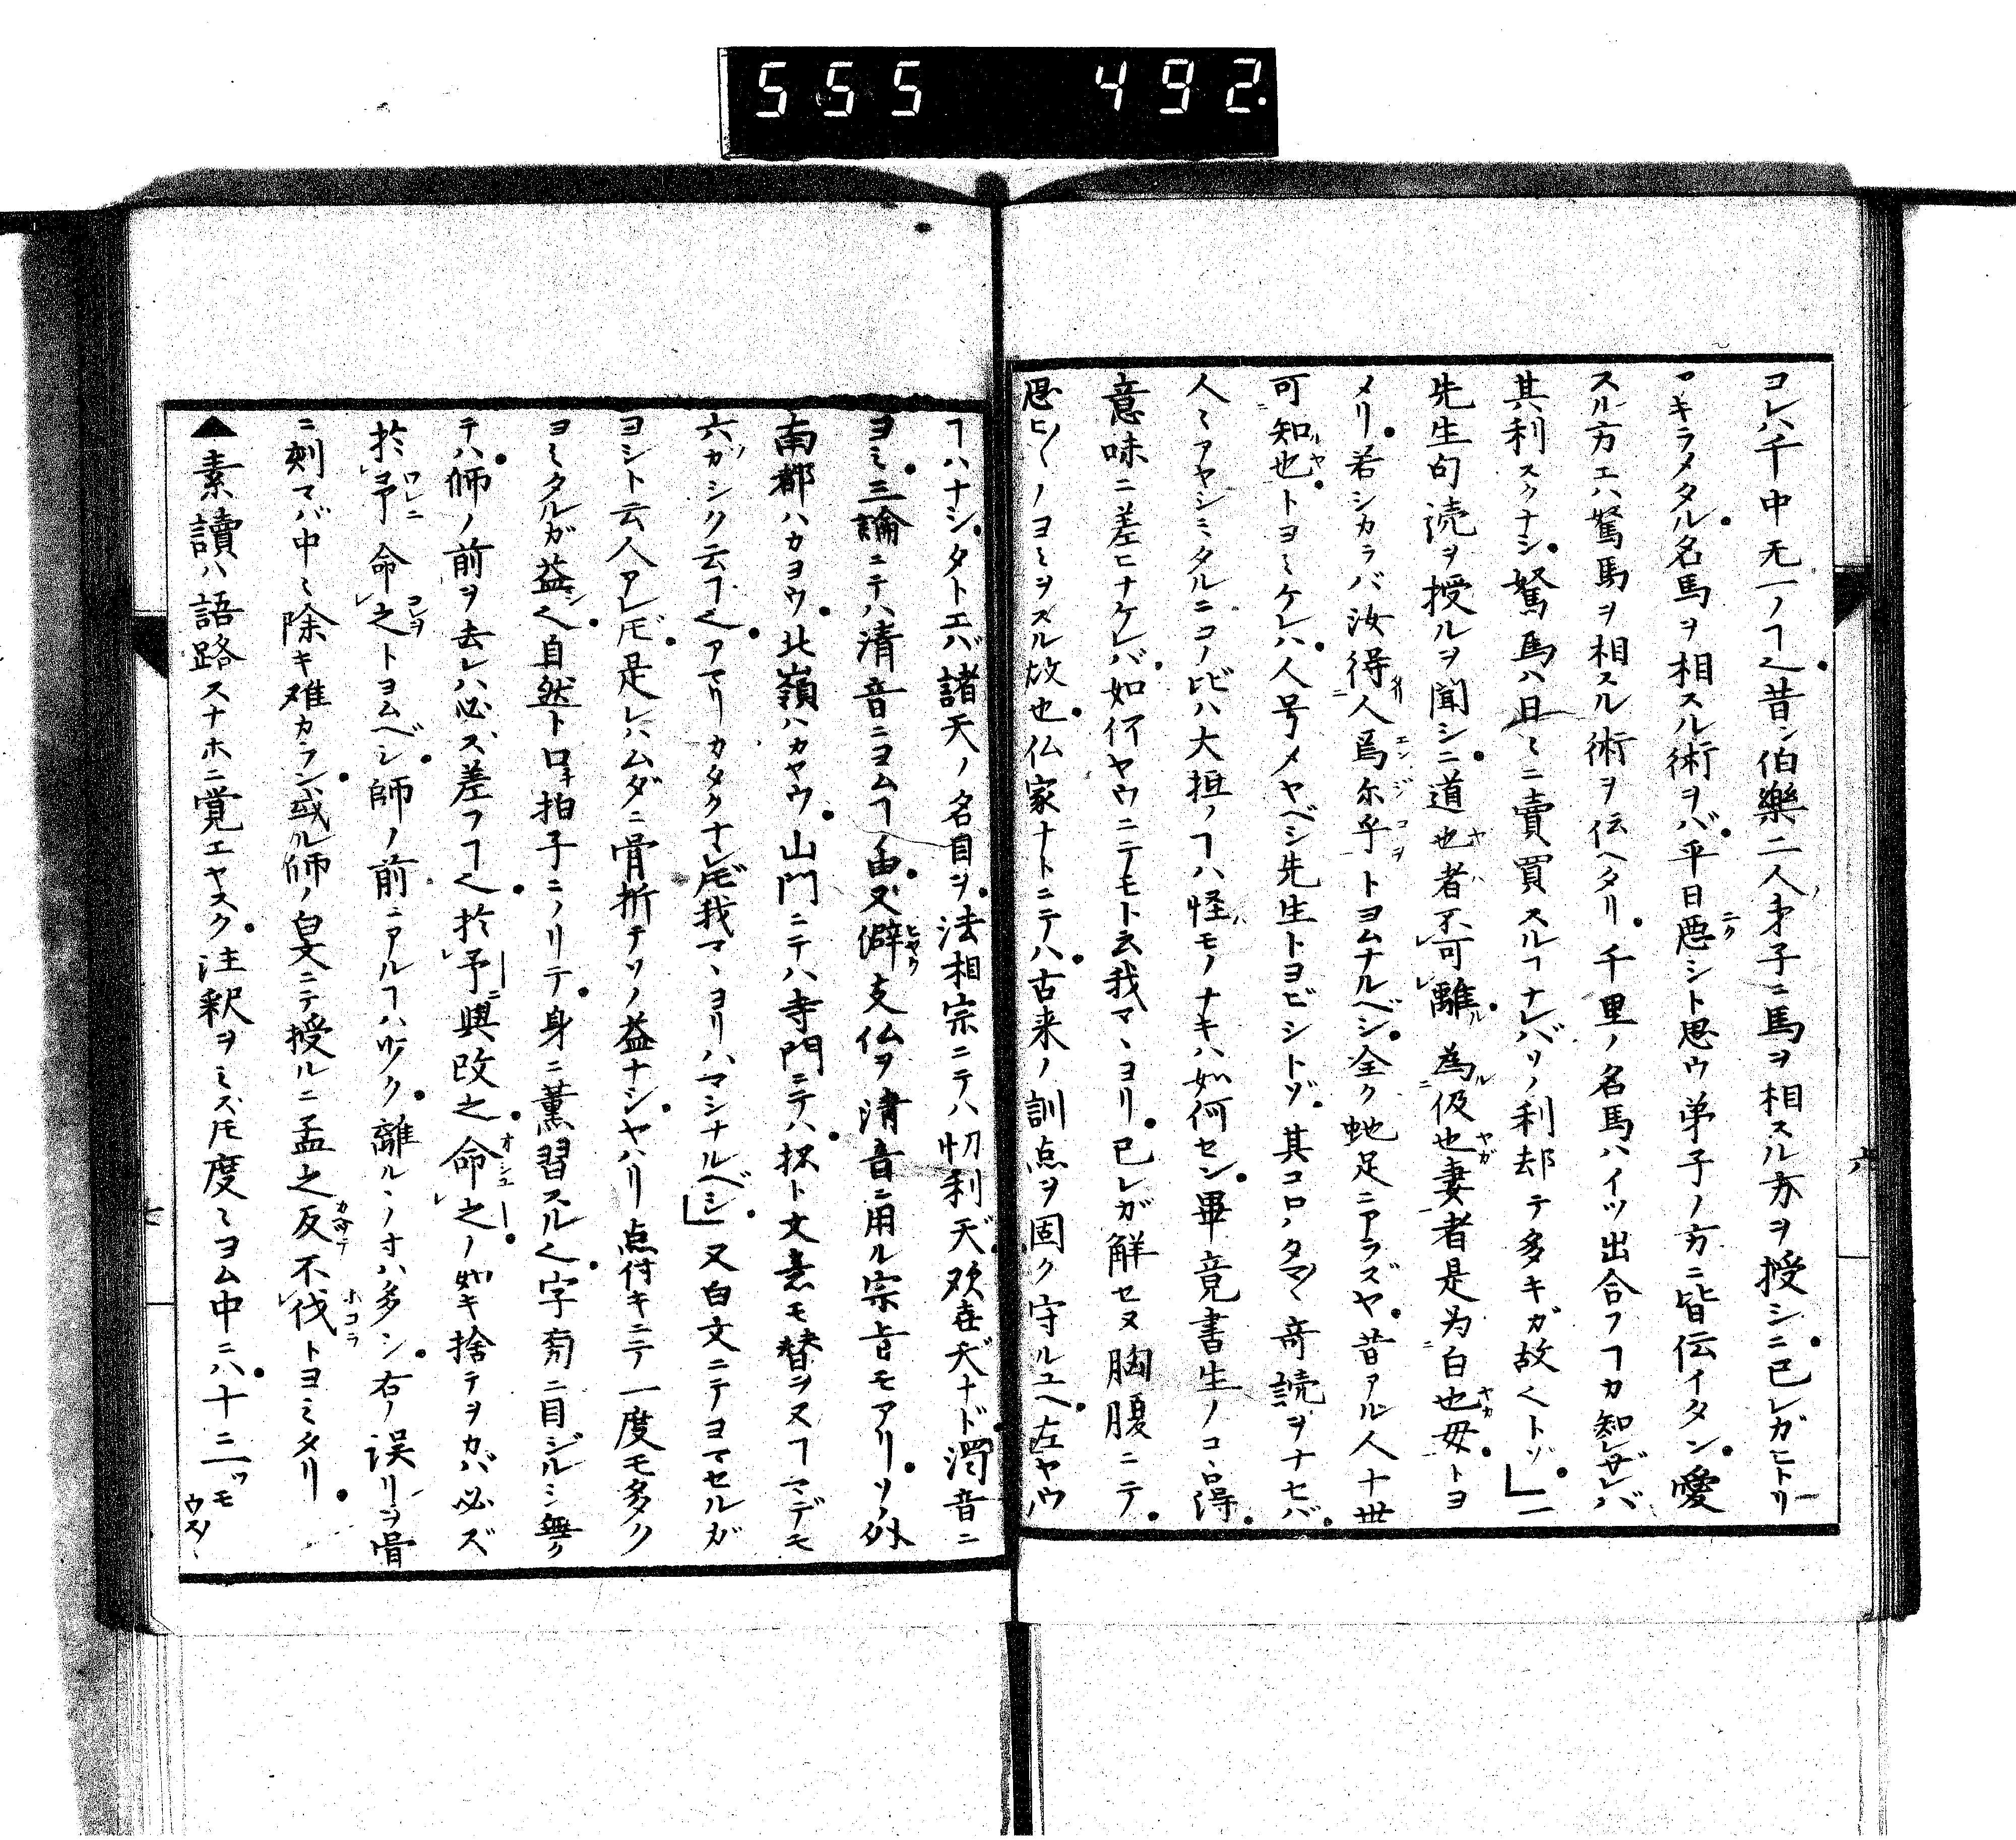 555 492.
コレハ千中无一ノヿ也昔シ伯樂二人ノ才子ニ馬ヲ相スル方ヲ授シニ己レガヒトリ
アキラメタル名馬ヲ相スル術ヲバ平日悪シト思ウ弟子ノ方ニ皆伝イタシ愛
スル方エハ駑馬ヲ相スル術ヲ伝ヘタリ千里ノ名馬ハイツ出合フヿカ知レザレバ
其利スクナシ駑馬ハ日〻ニ賣買スルヿナレバソノ利却テ多キガ故也トゾ」一
先生句読ヲ授ルヲ聞シニ道也者不可離ル為伋也妻者是为白也母トヨ
メリ若シカラバ汝得人爲尓乎トヨムナルベシ全ク蛇足ニアラズヤ昔アル人十世
可知也トヨミケレハ人号メヤベシ先生トヨビシトゾ其コロノタマ〳〵奇読ヲナセバ
人〻アヤシミタルニコノ比ハ大抵ノヿハ怪モノナキハ如何セン畢竟書生ノココロ得
意味ニ差ヒナケレバ如何ヤウニテモト云我マヽヨリ己レガ解セヌ胸腹ニテ
思ヒ〳〵ノヨミヲスル故也仏家ナトニテハ古来ノ訓点ヲ固ク守ルユヘ左ヤウ
六
ヿハナシタトエバ諸天ノ名目ヲ法相宗ニテハ忉利天歓喜天ナド濁音ニ
ヨミ三論ニテハ清音ニヨムヿノ由又僻支仏ヲ清音ニ用ル宗旨モアリソノ外
南都ハカヨウ北嶺ハカヤウ山門ニテハ寺門ニテハ抔ト文意モ替ラヌヿマデモ
六カシク云ヿ也アマリカタクナレ𪜈我マヽヨリハマシナルベシ」又白文ニテヨマセルガ
ヨシト云人アレ𪜈是レハムダニ骨折テソノ益ナシヤハリ点付キニテ一度モ多ク
ヨミタルガ益也自然ト口拍子ニノリテ身ニ薫習スル也字旁ニ目ジルシ無ク
テハ師ノ前ヲ去レハ必ズ差フヿ也於予與改之命之ノ如キ捨テヲカバ必ズ
於予命之トヨムベシ師ノ前ニアルヿハ少ク離ルヽノ寸ハ多シ右ノ誤リヲ骨
ニ刻マバ中〻除キ难カラン或ル師ノ白文ニテ授ルニ孟之反不伐トヨミタリ
▲素讀ハ語路スナホニ覚エヤスク注釈ヲミズ𪜈度〻ヨム中ニハ十ニ二ツモウス〳〵
七